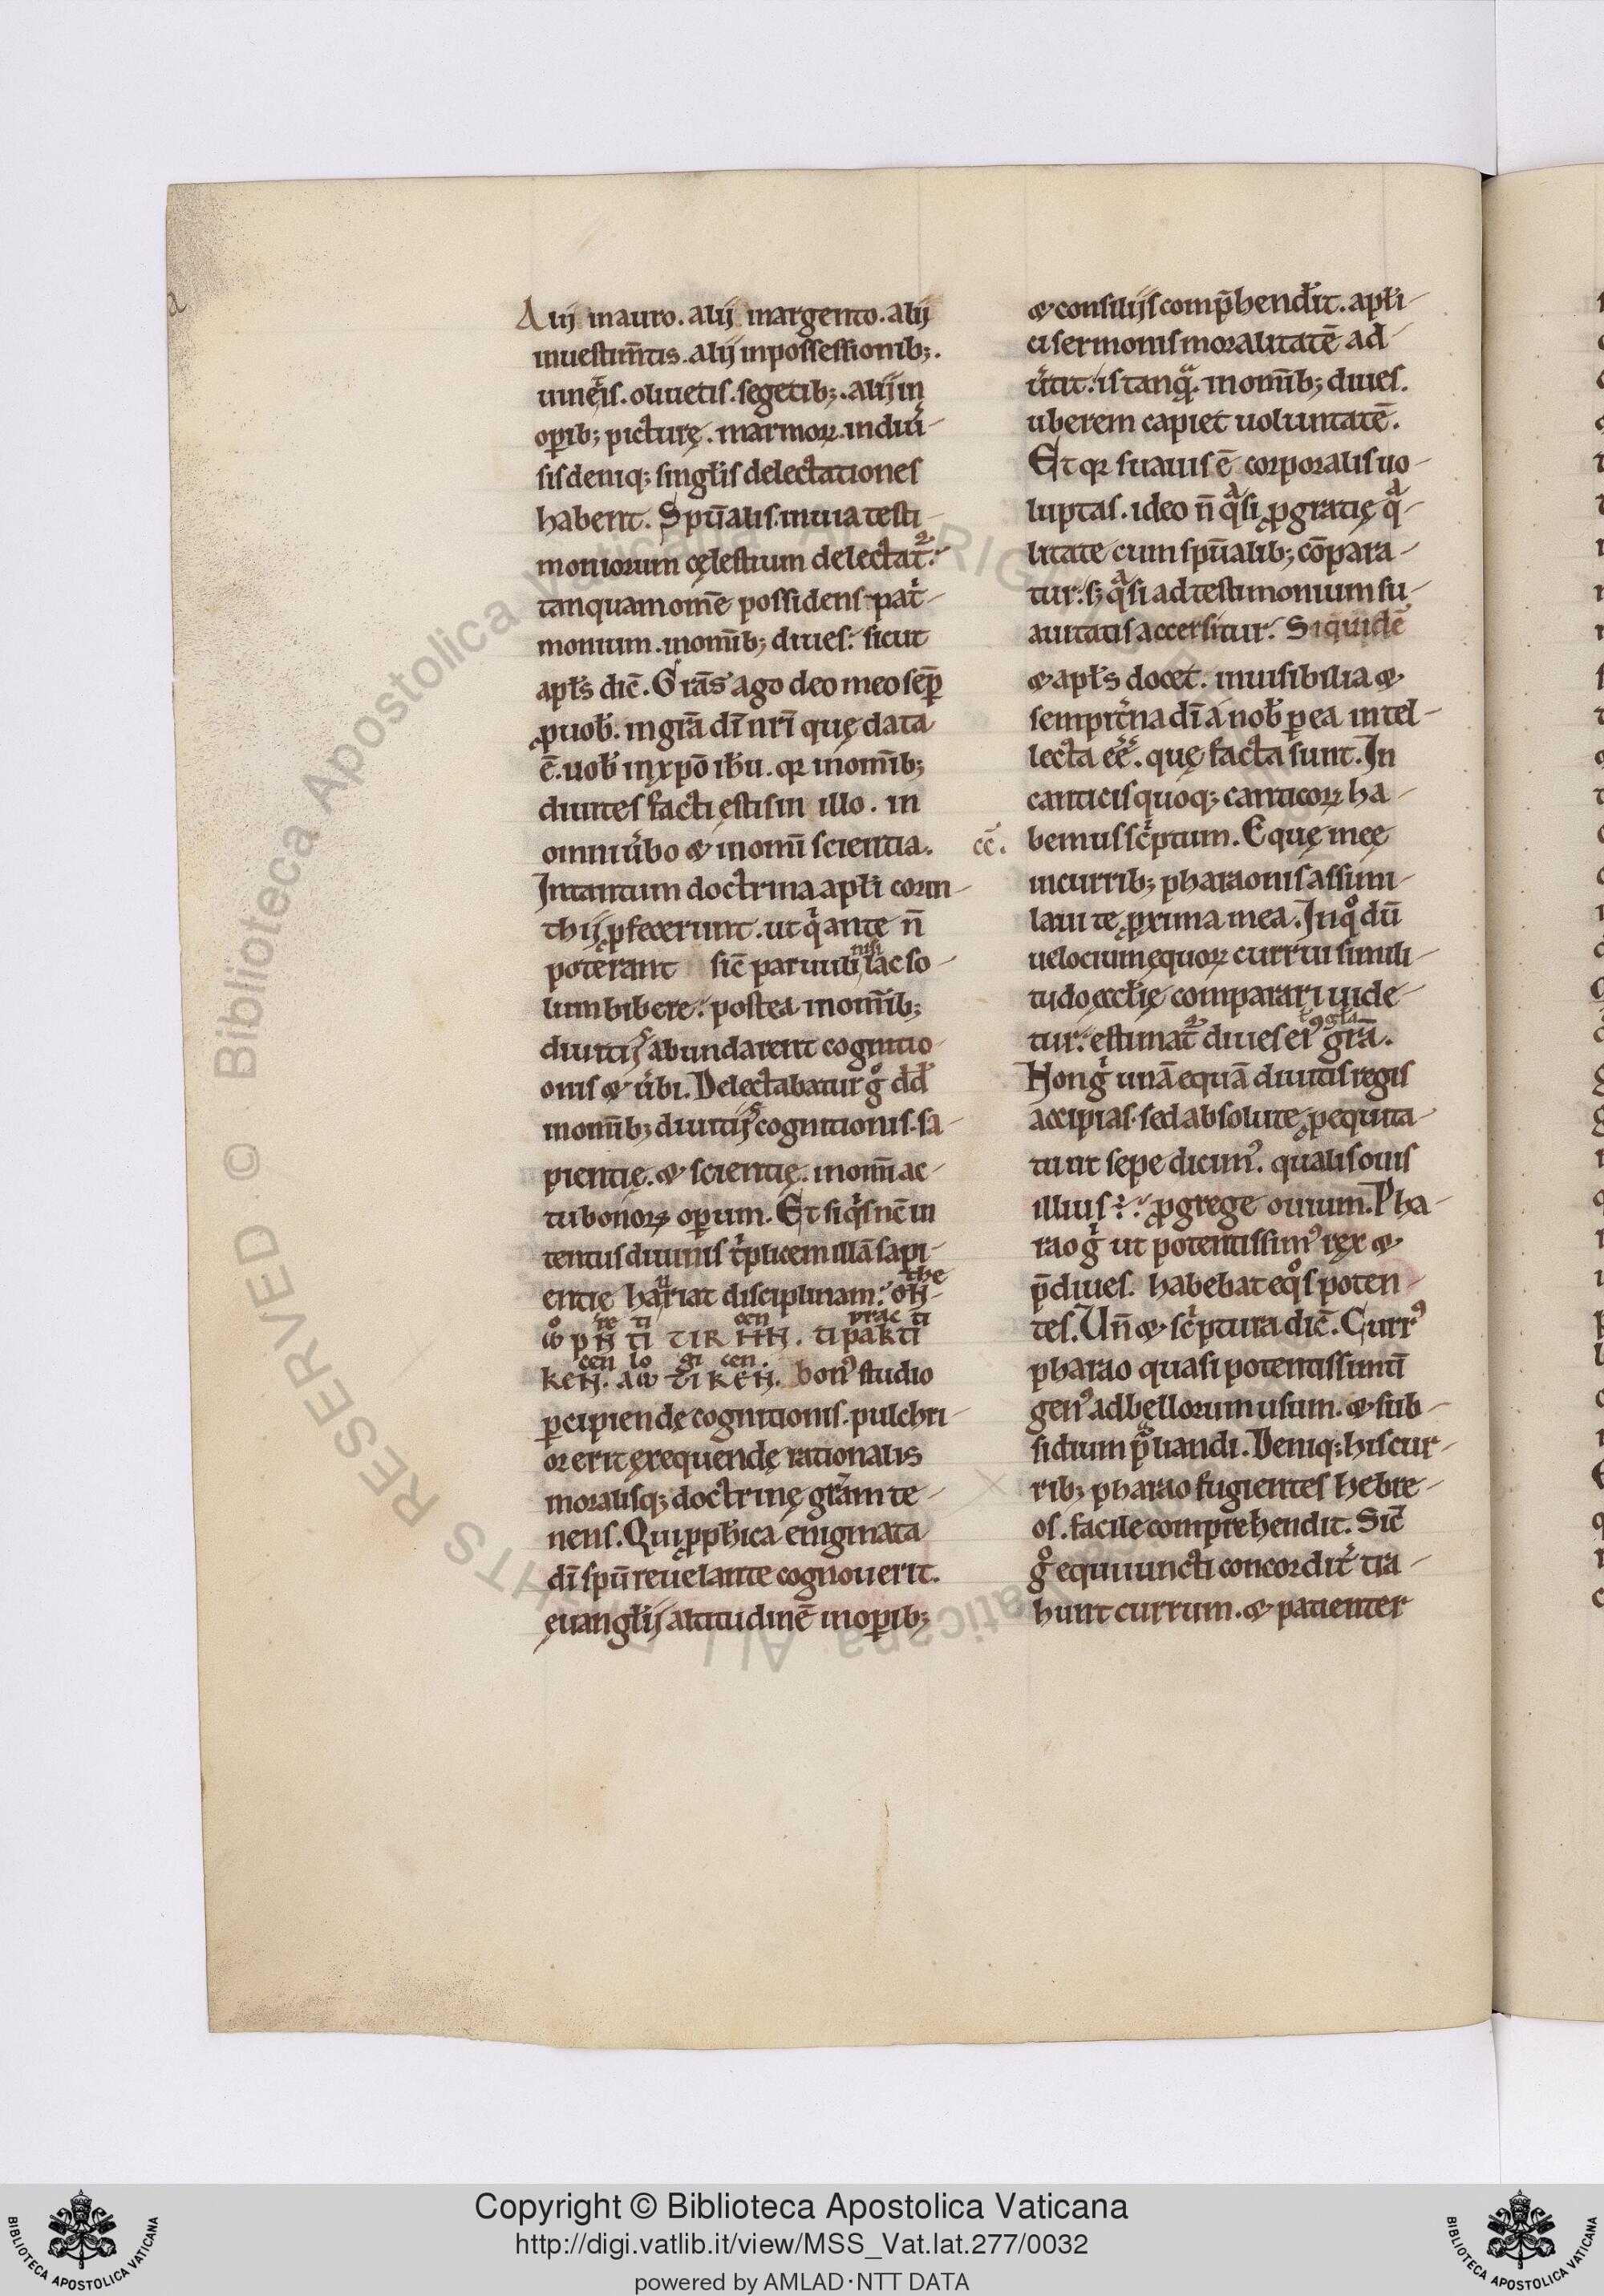 a
Alij in auro. alij in argento. alij
in uestim̄tis. alij in possessionib;.
uineis. oliuetis. segetib;. alij in
op̄ib; picturę. marmoꝝ. in diu̓
sis deniq; singłis delectationes
habent. Sp̄ualis. in uia testi-
moniorum cęlestium delectat᷒.
tanquam om̄e possidens pat̓-
monium. in om̄ib; diues. sicut
apłs dic̄. Gr̄as ago deo meo semp̄
ꝓ uob̓. in gr̄a dī nr̄i quę data
ē. uob̓ in xp̄o ih̄u. qꝛ in om̄ib;
diuites facti ęstis in illo. in
omni u̓bo & in om̄i scientia.
In tantum doctrina apłi corin-
thij ꝓfecerunt. ut q̓ ante n̄
poterant sic̄ paruuli nisi lac so-
lum bibere. postea in om̄ib;
diuitijs abundarent cognitio-
onis & u̓bi. Delectabatur gͦ dd̄
in om̄ib; diuitijs cognitionis. sa-
pientię. & scientię. in om̄i ac-
tu bonoꝝ op̄um. Et siq̓s nc̄ in
tentus diuinis t̓plicem illā sapi-
entię hauriat disciplinam. the
ѠN-
o re ti cen prac ti
ѠPH TI TIKHN. TI PAKTI
cen lo gi cen.
KEN. AѠ TI KEN. bon᷒ studio
ꝑcipiendę cognitionis. pulchri-
or erit ęxequendę rationalis
moralisq; doctrinę gr̄am te-
nens. Qui ꝓph̓ica enigmata
dī sp̄u reuelante cognouerit.
ęuangłij altitudinē in op̄ib;
& consilijs comp̄henderit. apłi-
ci sermonis moralitatē ad-
u̓tit. is tanqͣ. in om̄ib; diues.
uberem capiet uoluntatē.
Et qꝛ suauis ē corporalis uo-
luptas. ideo n̄ qͣsi ꝓ gratię qͣ-
litate cum sp̄ualib; cōpara-
tur. sꝫ qͣsi ad testimonium su-
auitatis accersitur. Siquidē
& apłs docet. inuisibilia &
sempit̓na dī a nob̓ p̄ ea intel-
lecta ēē. quę facta sunt. In
canticis quoq; canticoꝝ ha-
cc̄.
bemus sc̓ptum. Equę meę
in currib; pharaonis assimi-
laui te ꝓxima mea. In qͦ dū
uelocium ęquoꝝ currui simili-
tudo ęccłię comparari uide-
tur. estimat᷒ diues ei᷒ gr̄a.
t᷒ gła
Non g̓ unā equā diuitis regis
accipias. sed absolute, ꝓ equita-
tu ut sepe dicim᷒. qualis ouis
illius ÷. ꝓ grege ouium. Pha-
rao g̓ ut potentissim᷒ rex &
p̄diues. habebat eqͦs poten-
tes. Un̄ & sc̓ptura dic̄. Curr᷒
pharao quasi potentissimū
gen᷒ ad bellorum usum. & sub-
sidium pͣliandi. Deniq; his cur-
rib; pharao fugientes hebre-
os. facile comprehendit. Sic̄
gͦ equi iuncti concordit̓ tra-
hunt currum. & patienter
© Biblioteca Apostolica Vaticana ALL RIGHTS RESERVED
BIBLIOTECA APOSTOLICA VATICANA
Copyright © Biblioteca Apostolica Vaticana
http://digi.vatlib.it/view/MSS_Vat.lat.277/0032
powered by AMLAD·NTT DATA
BIBLIOTECA APOSTOLICA VATICANA